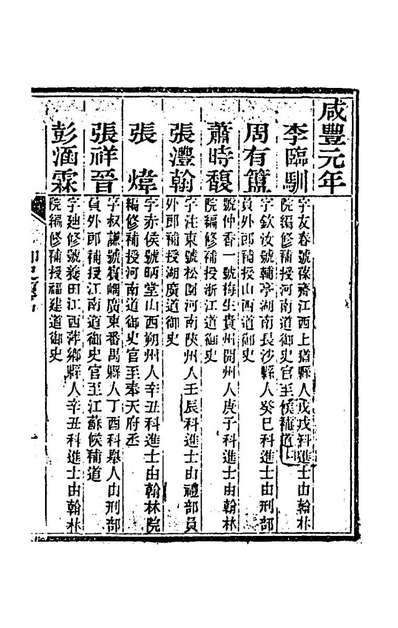 咸豐元年
李臨馴
字友春號葆齋江西上猶縣人戊戌科進士由翰林
院編修補授河南道御史官至候補道
周有簠
字欽汝號輔亭湖南長沙縣人癸巳科進士由刑部
員外郎補授山西道御史
蕭時馥
號仲香一號梅生貴州開州人庚子科進士由翰林
院編修補授浙江道御史
張灃翰
字注東號松園河南陝州人壬辰科進士由禮部員
外郎補授湖廣道御史
張煒
字赤侯號昞堂山西朔州人辛丑科進士由翰林院
編修補授河南道御史官至奉天府丞
張祥晉
字叔謙號賓嵎廣東番禺縣人丁酉科舉人由刑部
員外郎補授江南道御史官至江蘇候補道
彭涵霖
字廸修號義田江西萍鄉縣人辛丑科進士由翰林
院編修補授福建道御史